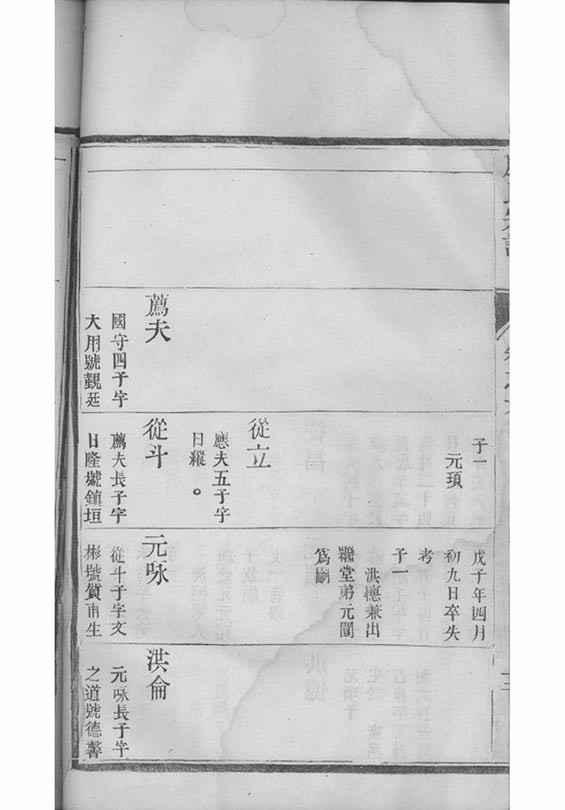 子一
元頊
戊子年四月
初九日卒失
考
子一
洪憓兼出
繼堂弟元闓
爲嗣
從立
應夫五子字
日縱。
薦夫
國守四子字
大用號觀廷
從斗
薦夫長子字
日隆號鎮垣
元咏
從斗子字文
彬號質甫生
洪倫
元咏長子字
之道號德馨